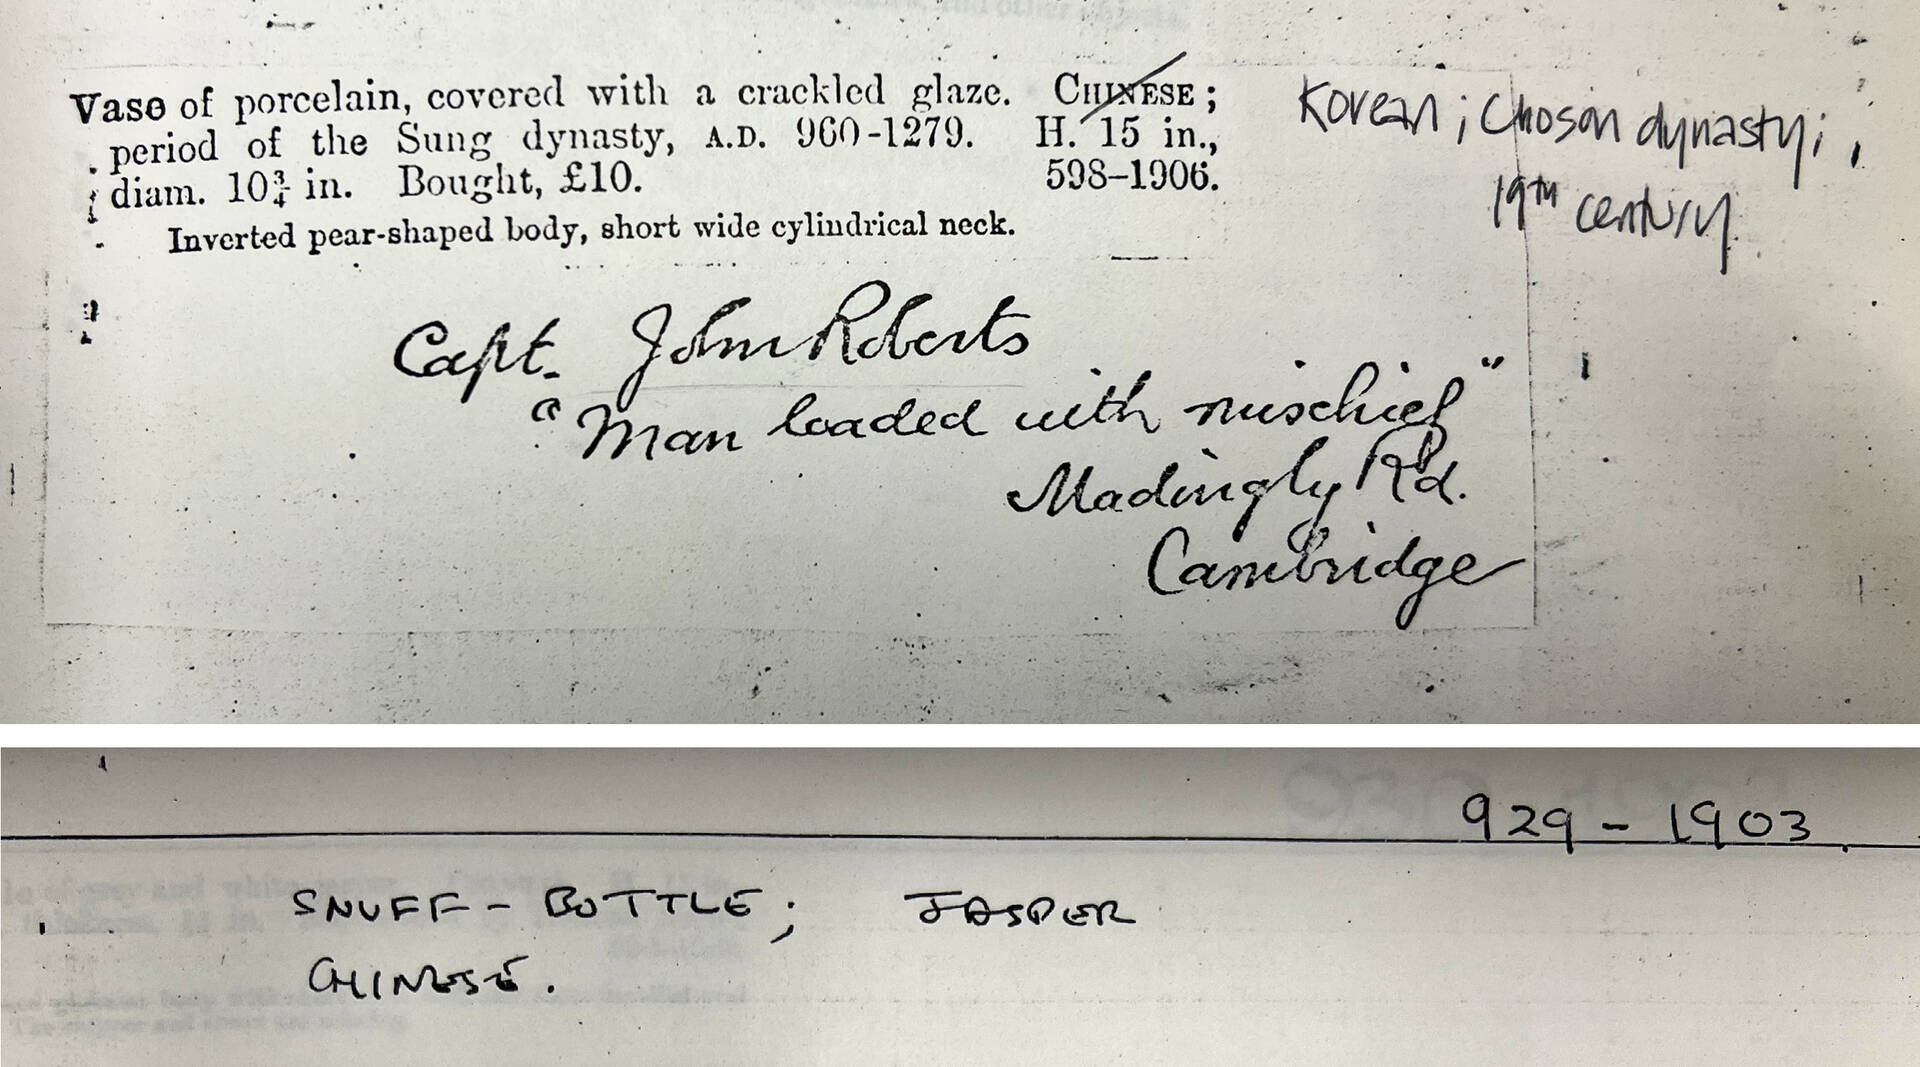 Vase of porcelain, covered with a crackled glaze. CHINESE;
period of the Sung dynasty, A.D. 960-1279. H. 15 in.,
diam. 10¾ in. Bought, £10. 598–1906.
Inverted pear-shaped body, short wide cylindrical neck.
Korean; Choson dynasty;
19th century
Capt. John Roberts
"Man loaded with mischief"
Madingly Rd.
Cambridge
929 – 1903
SNUFF – BOTTLE; JASPER
CHINESE.